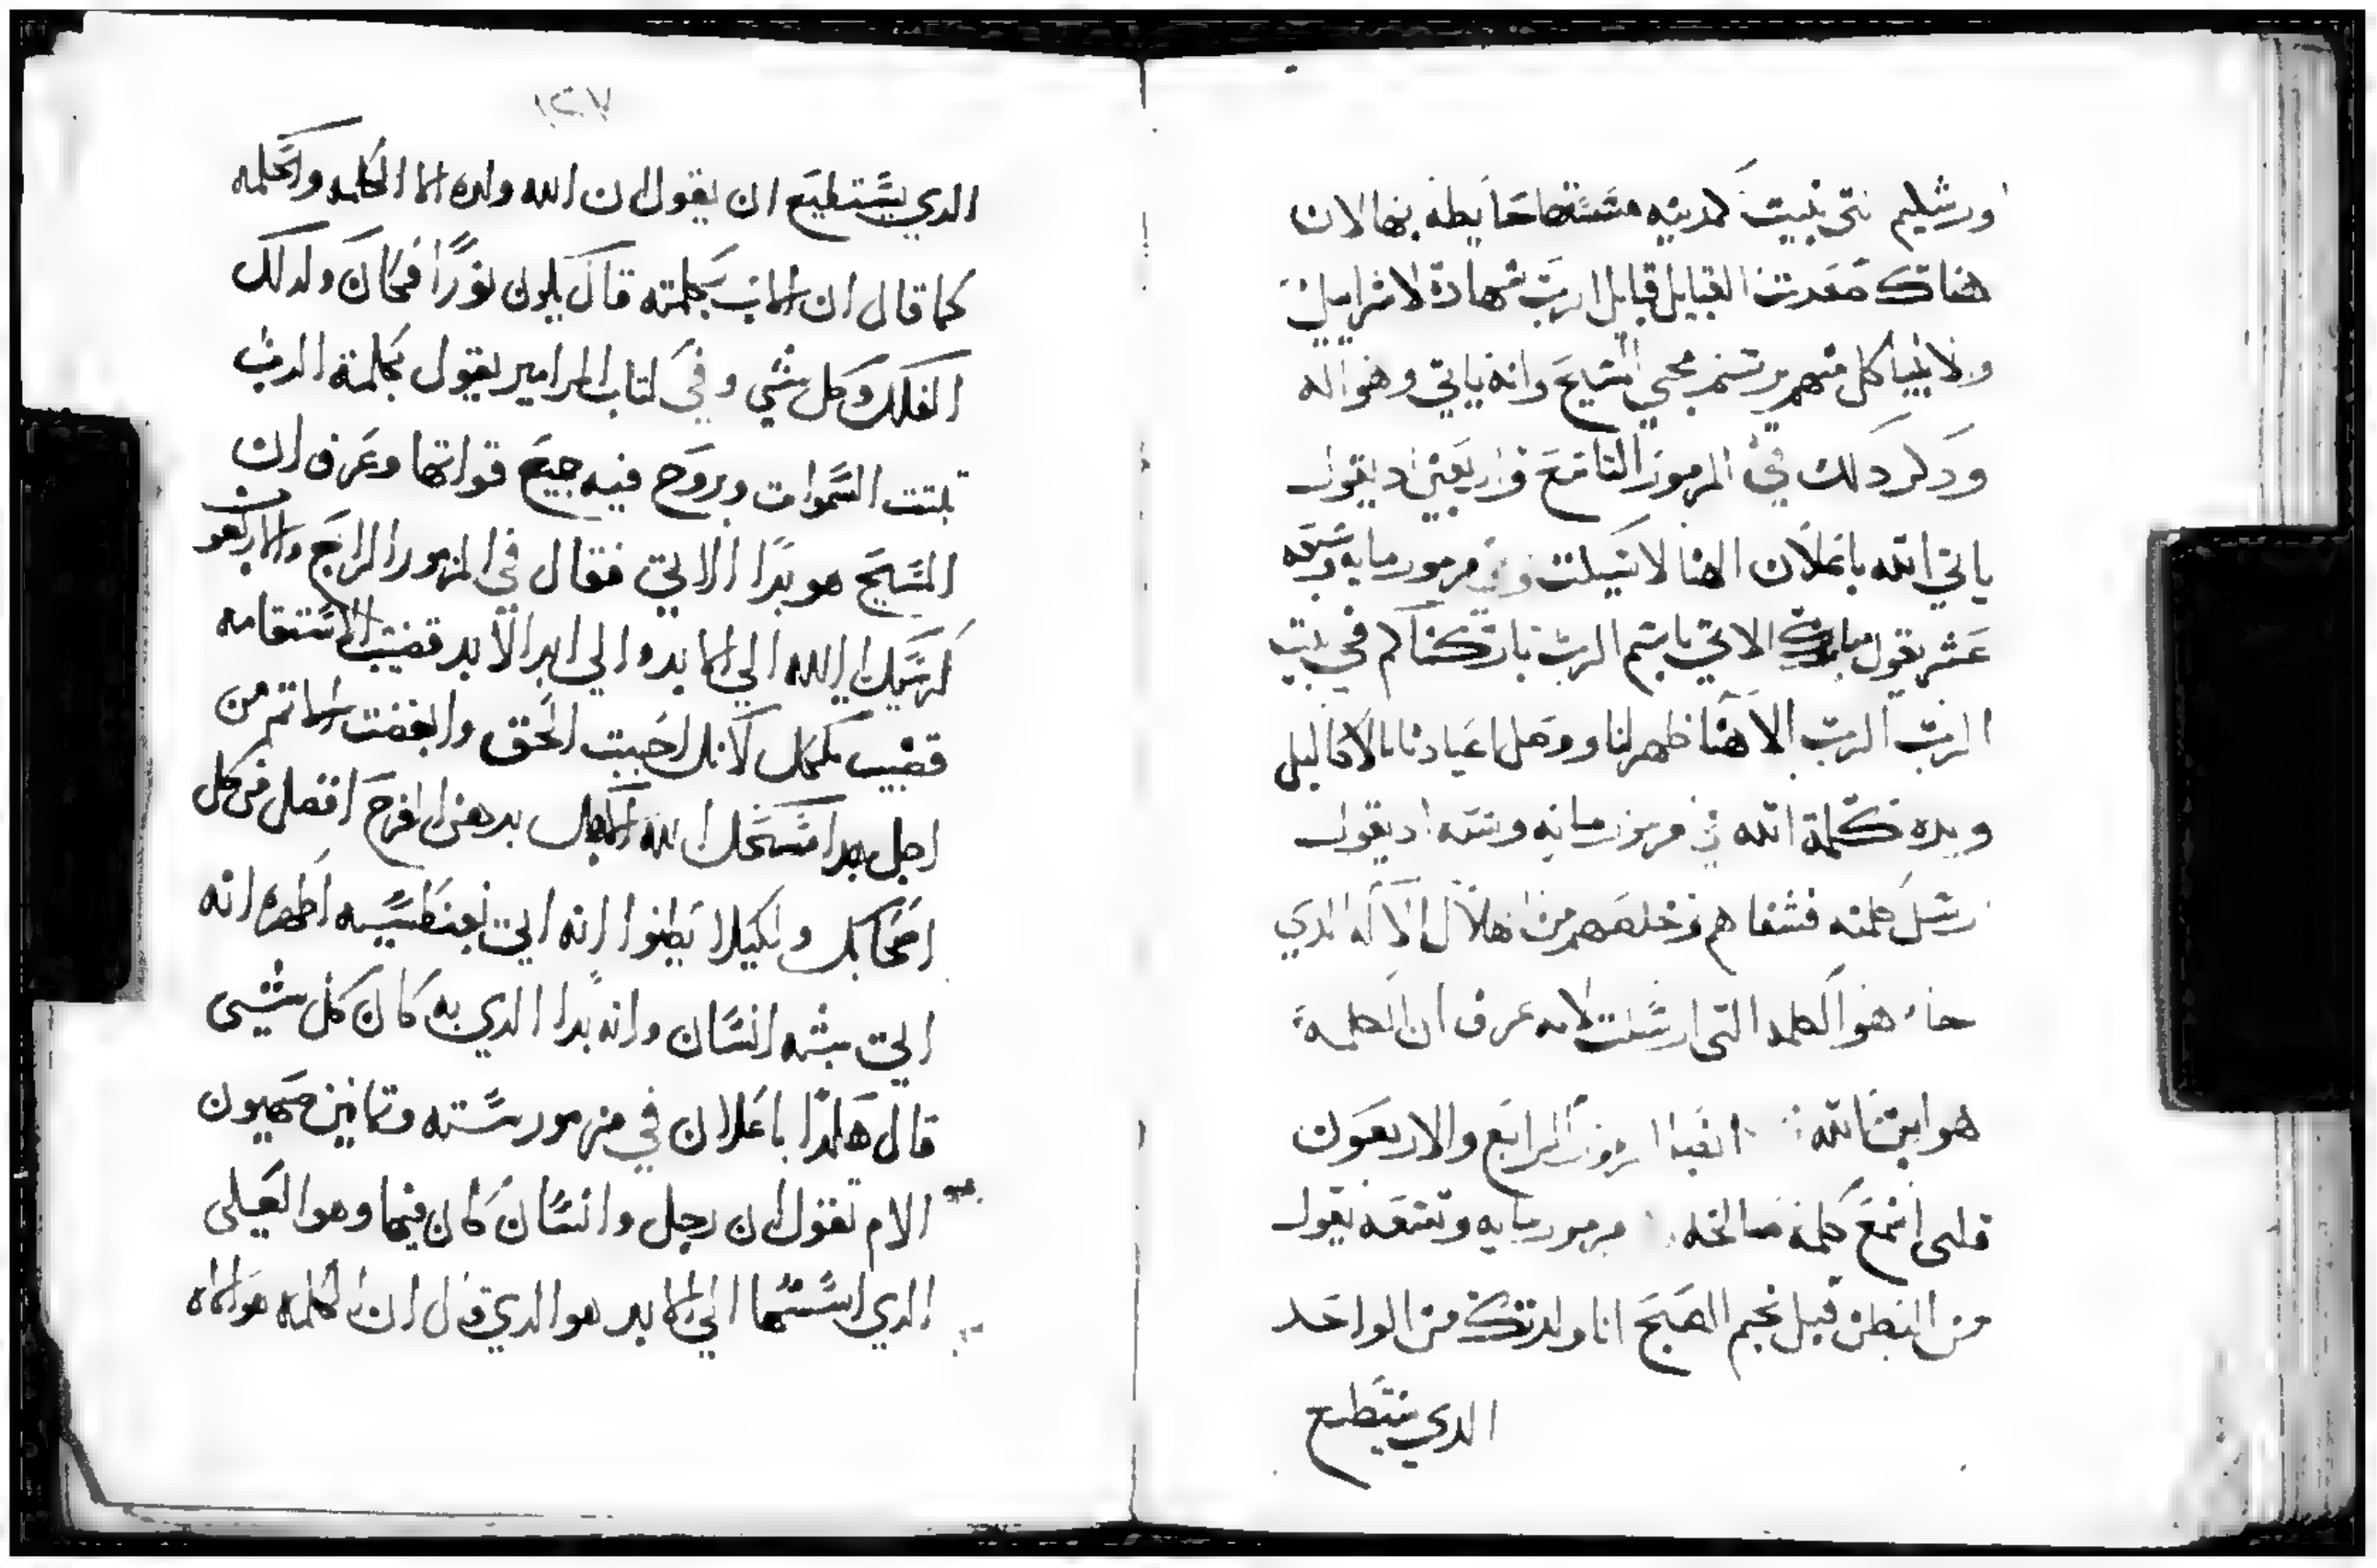 اورشليم التي بنيت كمدينه متسقا حايطه بها لان
هناك صعدت القبايل قبايل الرب شهادة لاسراييل
والانبيا كل منهم يرتسم مجي المسيح وانه ياتي وهو اله
ودكر دلك في المزمور التاسع واربعين اد يقول
ياتي الله باعلان الهنا لا يسكت وفي مزمور مايه وسبعه
عشر يقول مبارك الاتي باسم الرب باركناكم في بيت
الرب الرب الاهنا ظهر لنا اعيادنا بالاكاليل
وبده كلمة الله في مزمور مايه وسته اد يقول
ارسل كلمته فشفاهم وخلصهم من الاله الدي
جاء هو الكلمه التي ارسلت لانه عرف ان الكلمة
هو ابن الله ايضا المزمور الرابع والاربعون
قلبى اسمع كلمة صالحه مزمور مايه وتسعه يقول
من البطن قبل نجم الصبح انا ولدتك من الواحد
الدي يستطيع
١٢٧
الدي يستطيع ان يقول ن الله ولده الا الكلمه والكلمه
كما قال ان الاب بكلمته قال يكون نورًا فكان ولدلك
الفلك وكل شي وفي كتاب المزامير يقول بكلمة الرب
تبتت السموات وبروح فيه جميع قواتها وعرف ان
المسيح هو بدا الاتي فقال في المزمور الرابع والاربعون
كرسيك يا الله الي الابد والي ابد الابد قضيب الاستقامه
قضيب ملكك لانك احببت الحق وابغضت الاتم من
اجل هدا مسحك الله الاهك بدهن الفرح افضل من كل
اصحابك ولكيلا يظنوا انه اتي اظهر انه
اتي بشبه انسان وانه بدا الدي به كان كل شيى
قال هكدا باعلان في مزمور سته وتمانين صهيون
الام تقول ان رجل وانسان كان فيها وهو العلى
الدي اسسها الي الابد هو الدي قال ان الكلمه هو الاله